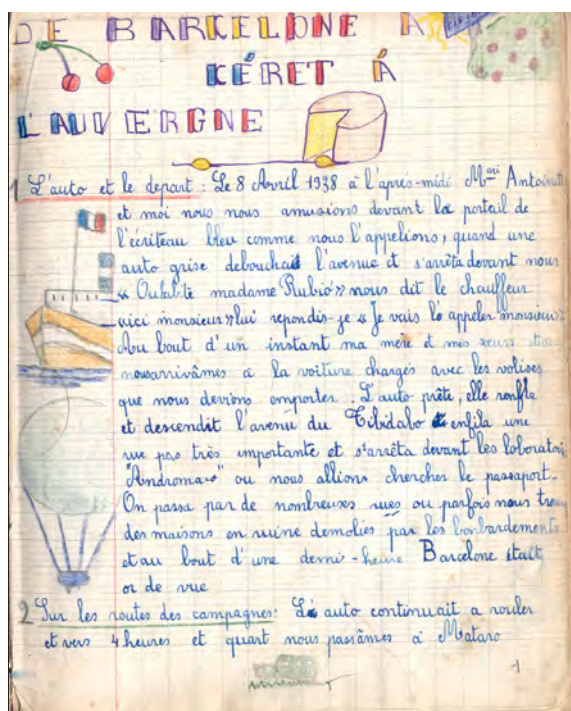 DE BARCELONE A
CÉRET À
L'AUVERGNE
1 L'auto et le depart : Le 8 Avril 1938 à l'après-midi Mari Antoinette
et moi nous nous amusions devant le portail de
l'écriteau bleu comme nous l'appelions, quand une
auto grise debouchait l'avenue et s'arrêta devant nous
madame Rubió » nous dit le chauffeur
« ici monsieur » lui repondis-je « Je vais l'appeler monsieur »
Au bout d'un instant ma mère et mes sœurs
nous arrivâmes a la voiture chargés avec les valises
que nous devions emporter. L'auto prête, elle ronfla
et descendit l'avenu du Tibidabo enfila une
rue pas très importante et s'arrêta devant les laboratoir
"Andromaco" ou nous allions chercher le passaport.
On passa par de nombreuses rues ou parfois nous
des maisons en ruine demolies par les bonbardements
et au bout d'une demi-heure Barcelone était
or de vue
2 Sur les routes des campagnes: L'auto continuait a rouler
et vers 4 heures et quart nous passâmes à Mataro
1